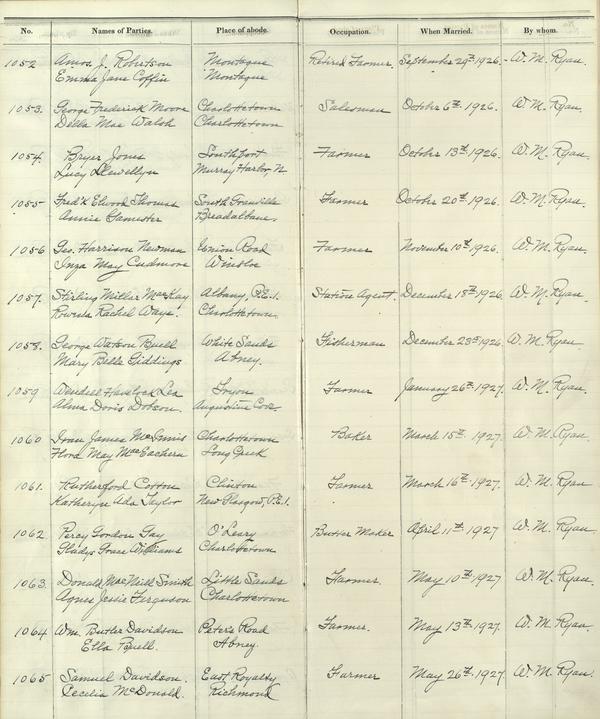 No. Names of Parties. Place of abode. Occupation. When Married. By whom.
1052 Amos J. Robertson Montague Retired Farmer. September 29th 1926. W. M. Ryan.
Emma Jane Coffin Montague
1053. George Frederick Moore Charlottetown Salesman October 6th 1926. W. M. Ryan.
Della Mae Walsh Charlottetown
1054. Bryer Jones Southport Farmer October 13th 1926. W. M. Ryan.
Lucy Llewellyn Murray Harbor N
1055 Fred'k Elwood Thomas South Granville Farmer October 20th 1926. W. M. Ryan.
Annie Gamester Breadalbane.
1056 Geo. Harrison Newman Union Road Farmer November 10th 1926. W. M. Ryan.
Inza May Cudmore Winsloe
1057. Stirling Miller MacKay Albany, P.E.I. Station Agent. December 18th 1926. W. M. Ryan.
Rachel Charlottetown
1058. George Watson Buell White Sands Fisherman December 23rd 1926. W. M. Ryan.
Mary Belle Giddings Abney.
1059 Wendell Havelock Lea Tryon Farmer January 26th 1927. W. M. Ryan.
Alma Doris Dobson. Augustine Cove
1060 James McInnis Charlottetown Baker March 15th 1927. W. M. Ryan.
Flora May MacEachern Long Creek
1061. Rutherford Cotton Clinton Farmer March 16th 1927. W. M. Ryan
Katheryn Ada Taylor New Glasgow, P.E.I.
1062 Percy Gordon Gay O'Leary Butter Maker April 11th 1927 W. M. Ryan.
Gladys Grace Williams Charlottetown
1063. Donald MacNeill Smith Little Sands Farmer. May 10th 1927 W. M. Ryan.
Agnes Jessie Ferguson Charlottetown
1064 Wm. Butler Davidson Peter's Road Farmer. May 13th 1927. W. M. Ryan.
Ella Buell. Abney.
1065 Samuel Davidson. East Royalty Farmer May 26th 1927 W. M. Ryan.
Cecilia McDonald. Richmond